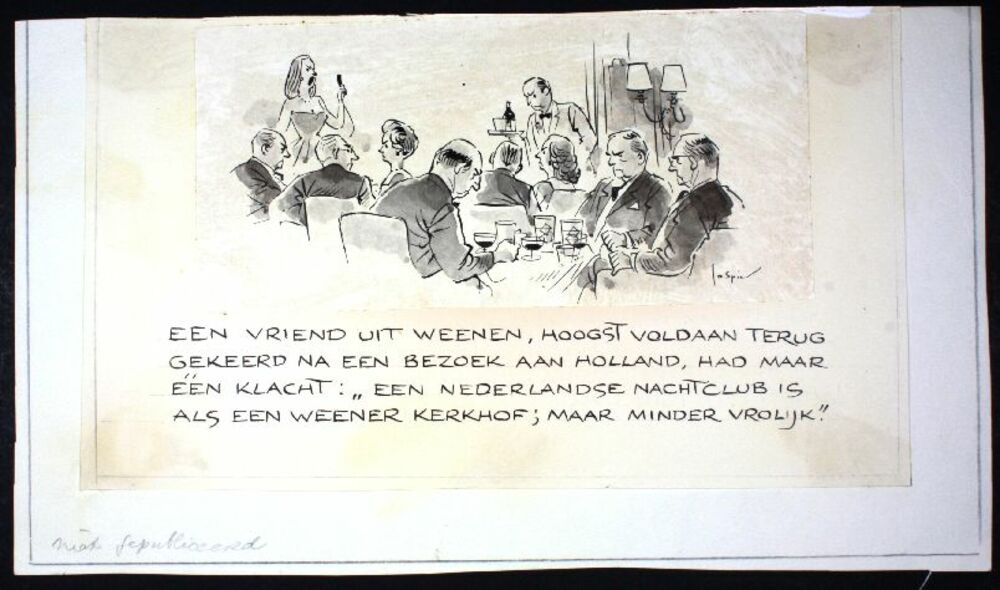 Jo Spier
EEN VRIEND UIT WEENEN, HOOGST VOLDAAN TERUG
GEKEERD NA EEN BEZOEK AAN HOLLAND, HAD MAAR
ÉÉN KLACHT: „ EEN NEDERLANDSE NACHTCLUB IS
ALS EEN WEENER KERKHOF; MAAR MINDER VROLIJK."
niet gepubliceerd